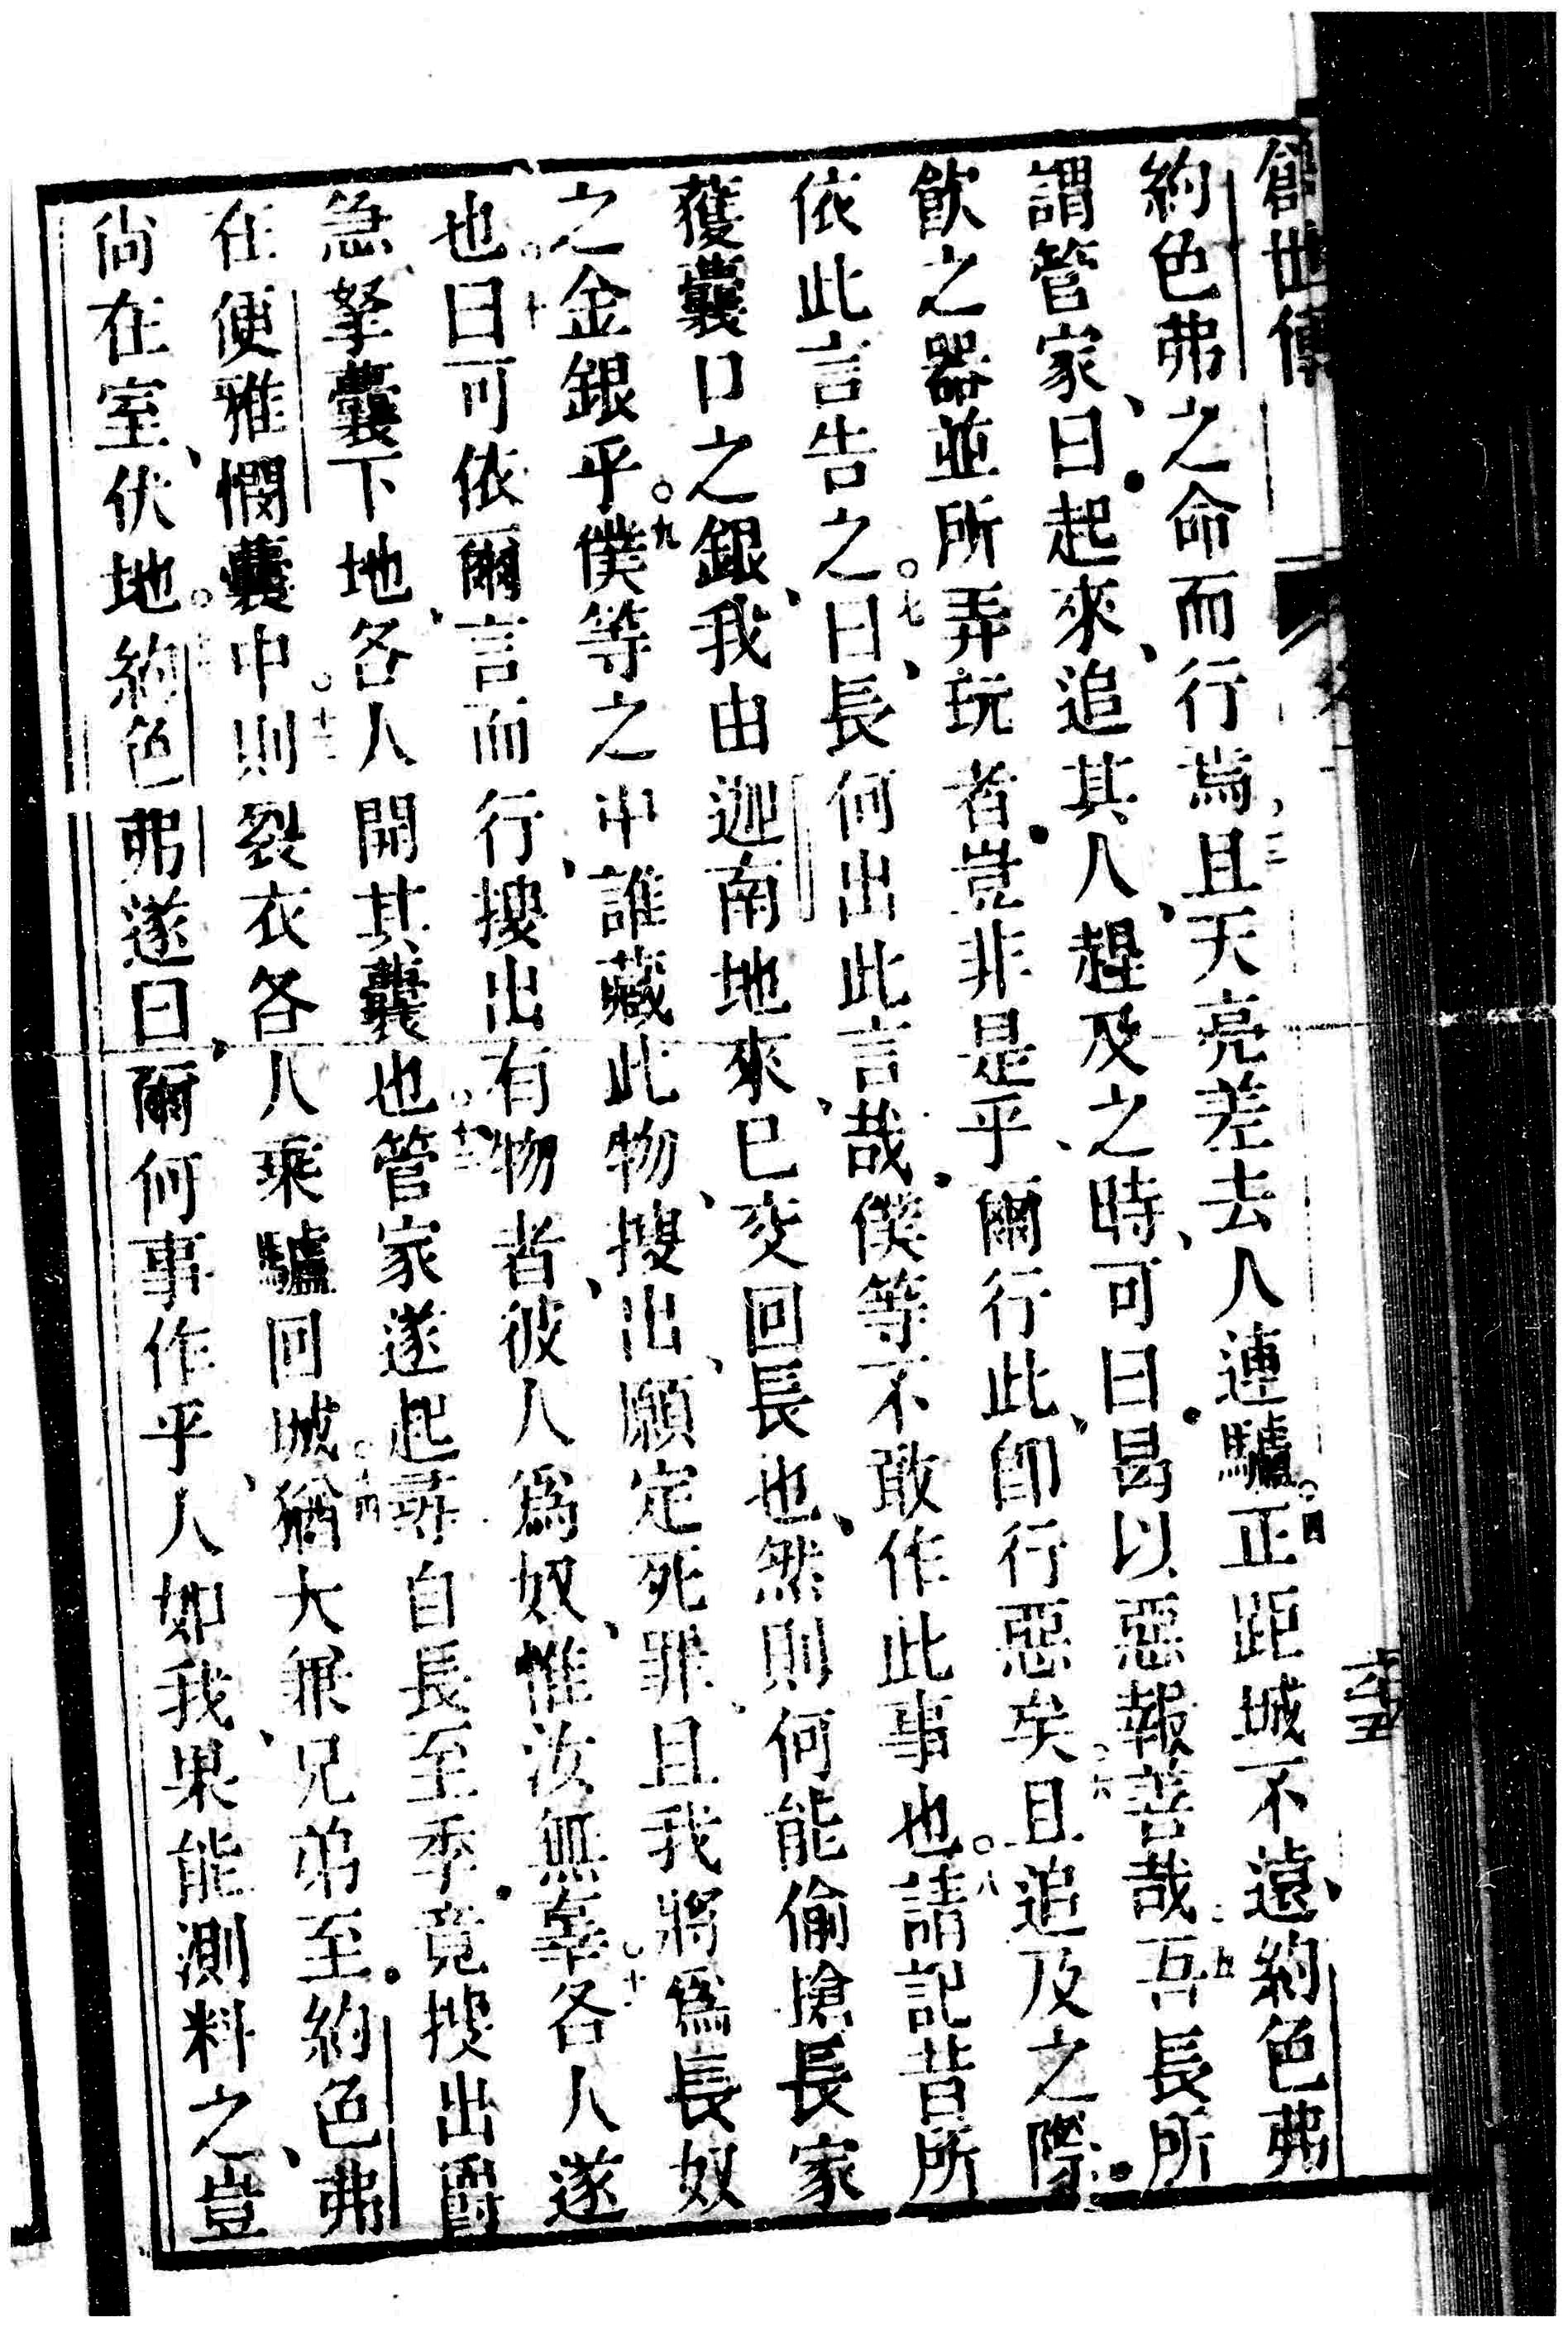 創世傳
約色弗之命而行焉。三且天亮差去人連驢。四正距城不遠、約色弗
謂管家、曰、起來、追其人、趕及之時、可曰、曷以惡報善哉。五吾長所
飲之器並所弄玩者、豈非是乎、爾行此、卽行惡矣。六且追及之際、
依此言告之。七曰、長何出此言哉、僕等不敢作此事也。八請記昔所
獲囊口之銀、我由迦南地來、已交回長也、然則何能偷搶長家
之金銀乎。九僕等之中誰藏此物、搜出、願定死罪、且我將爲長奴
也。十曰可依爾言而行、搜出有物者、彼人爲奴、惟汝無辜。十一各人遂
急、拏囊下地、各人開其囊也。十二管家遂起尋自長至季、竟搜出爵
在便雅憫囊中。十三則裂衣各人乘驢回城。十四猶大兼兄弟至、約色弗
尙在室、伏地。十五約色弗遂曰、爾何事作乎、人如我、果能測料之、豈